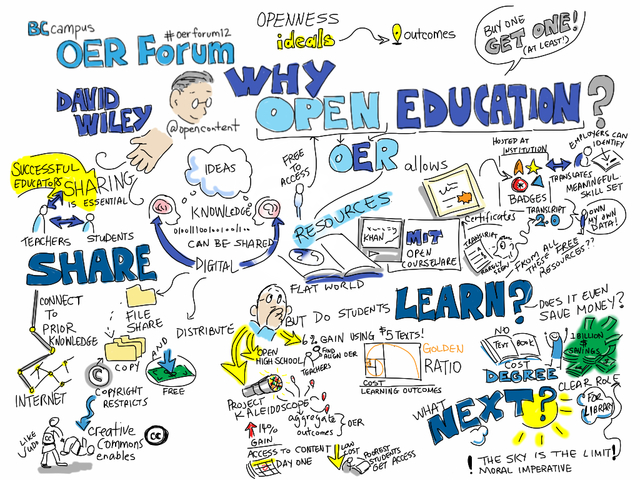 BCcampus
OER Forum
#oerforum12
OPENNESS
ideals
outcomes
BUY ONE
GET ONE!
(AT LEAST!)
DAVID
WILEY
@opencontent
WHY
OPEN EDUCATION?
OER allows
FREE
TO
ACCESS
SUCCESSFUL
EDUCATORS
SHARING
IS ESSENTIAL
TEACHERS
STUDENTS
IDEAS
KNOWLEDGE
CAN BE SHARED
DIGITAL
RESOURCES
FLAT WORLD
KHAN
MIT
OPEN
COURSEWARE
HOSTED AT
INSTITUTION
BADGES
TRANSLATES
EMPLOYERS CAN
IDENTIFY
MEANINGFUL
SKILL SET
Certificates
TRANSCRIPT
2.0
OWN
MY OWN
DATA!
TRANSCRIPT
FROM ALL
THESE FREE
RESOURCES??
SHARE
CONNECT
TO
PRIOR
KNOWLEDGE
INTERNET
FILE
SHARE
DISTRIBUTE
COPY
AND
FREE
COPYRIGHT
RESTRICTS
LIKE
JUDO
creative
commons
enables
cc
BUT DO STUDENTS
LEARN?
6% GAIN USING $5 TEXTS!
OPEN
HIGH SCHOOL
AND
ALIGN OER
TEACHERS
PROJECT
KALEIDOSCOPE
14%
GAIN
aggregate
outcomes
OER
ACCESS TO CONTENT
DAY ONE
LOW
COST
POOREST
STUDENTS
GET ACCESS
GOLDEN
RATIO
COST
LEARNING OUTCOMES
DOES IT EVEN
SAVE MONEY?
NO
TEXT BOOK
COST
DEGREE
1 BILLION
$
SAVINGS
CLEAR ROLE
FOR
LIBRARY
WHAT
NEXT?
! THE SKY IS THE LIMIT!
MORAL IMPERATIVE